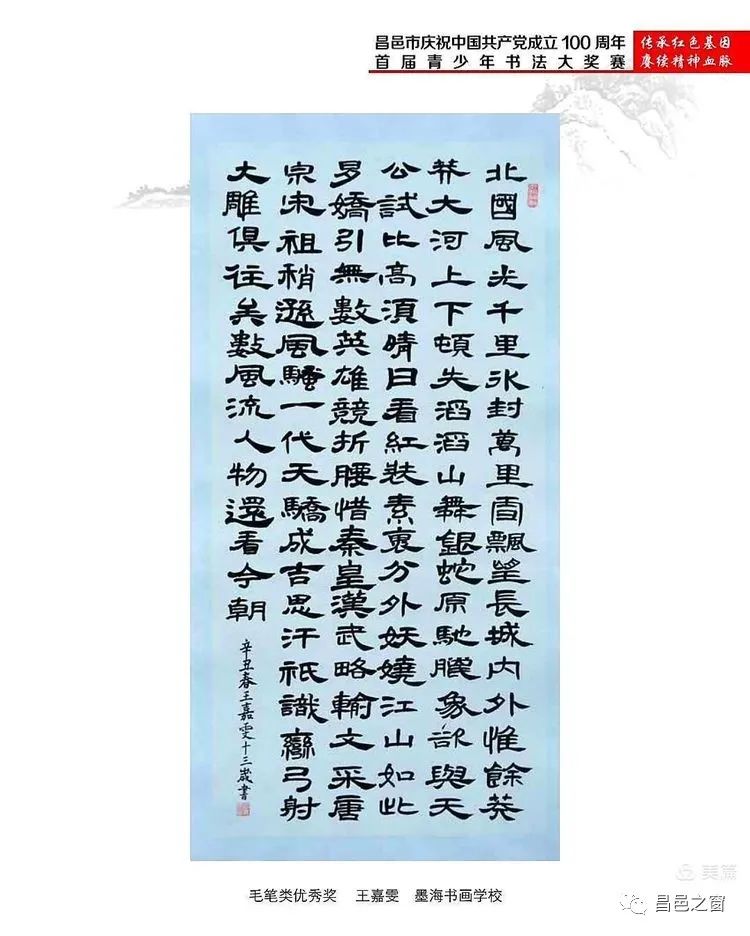 昌邑市庆祝中国共产党成立100周年
首届青少年书法大奖赛
传承红色基因
赓续精神血脉
北國風光千里冰封萬里雪飄望長城内外惟餘莽
莽大河上下頓失滔滔山舞銀蛇原馳臘象欲與天
公試比高須晴日看紅裝素裹分外妖嬈江山如此
多嬌引無數英雄競折腰惜秦皇漢武略輸文采唐
宗宋祖稍遜風騷一代天驕成吉思汗祇識彎弓射
大雕俱往矣數風流人物還看今朝
辛丑春王嘉雯十三歲書
毛笔类优秀奖 王嘉雯 墨海书画学校
美篇
昌邑之窗